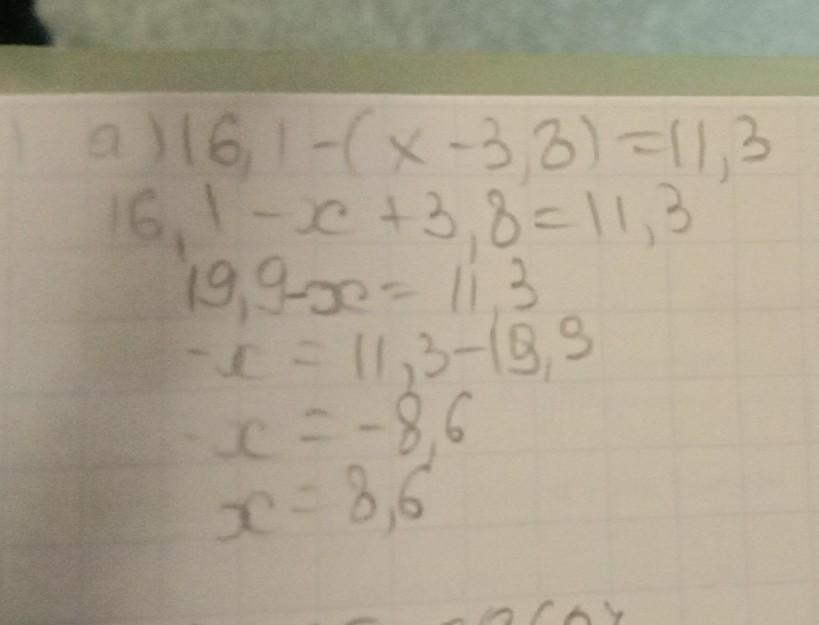 а) 16,1 - (x - 3,8) = 11,3
16,1 - x + 3,8 = 11,3
19,9 - x = 11,3
-x = 11,3 - 19,9
-x = -8,6
x = 8,6